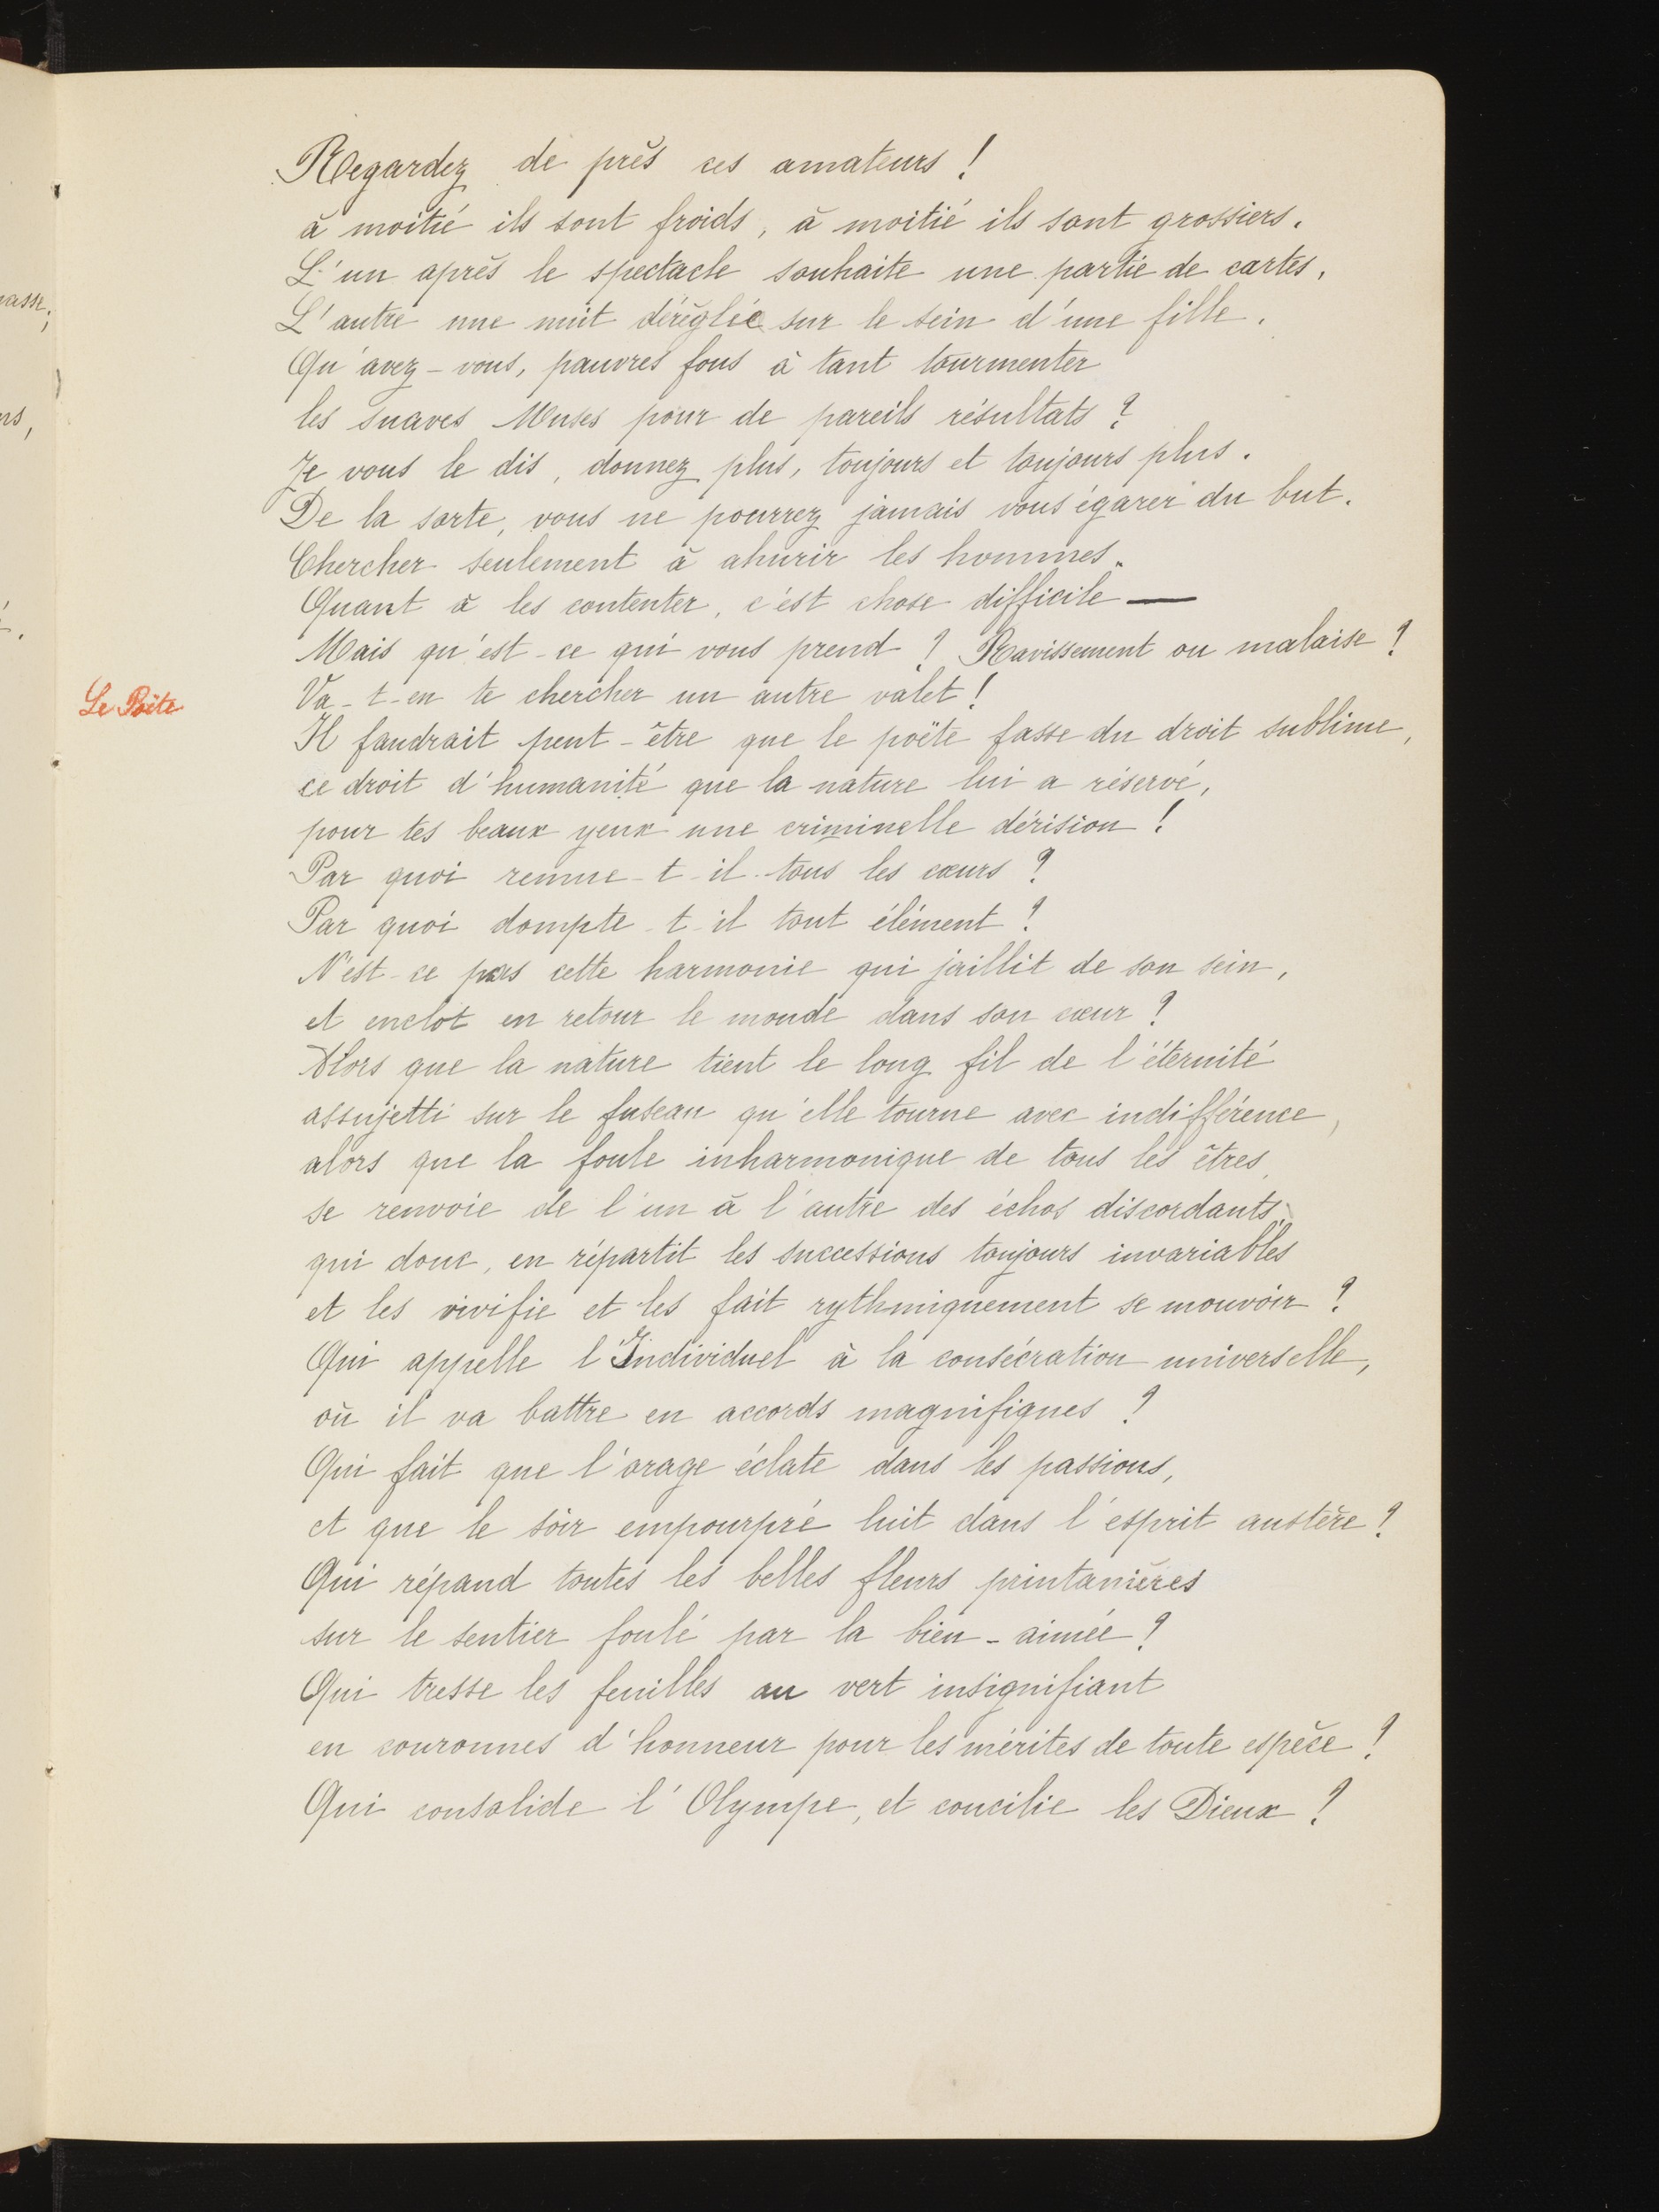 Regardez de près ces amateurs !
à moitié ils sont froids, à moitié ils sont grossiers.
L'un après le spectacle souhaite une partie de cartes,
L'autre une nuit déréglée sur le sein d'une fille.
Qu'avez-vous, pauvres fous à tant tourmenter
les suaves Muses pour de pareils résultats ?
Je vous le dis, donnez plus, toujours et toujours plus.
De la sorte, vous ne pourrez jamais vous égarer du but.
Chercher seulement à ahurir les hommes.
Quant à les contenter, c'est chose difficile —
Mais qu'est-ce qui vous prend ? Ravissement ou malaise ?
Le Poëte
Va-t-en te chercher un autre valet !
Il faudrait peut-être que le poëte fasse du droit sublime,
ce droit d'humanité que la nature lui a réservé,
pour tes beaux yeux une criminelle dérision !
Par quoi remue-t-il tous les cœurs ?
Par quoi dompte-t-il tout élément ?
N'est-ce pas cette harmonie qui jaillit de son sein,
et enclôt en retour le monde dans son cœur ?
Alors que la nature tient le long fil de l'éternité
assujetti sur le fuseau qu'elle tourne avec indifférence,
alors que la foule inharmonique de tous les êtres,
se renvoie de l'un à l'autre des échos discordants,
qui donc, en répartit les successions toujours invariables
et les vivifie et les fait rythmiquement se mouvoir ?
Qui appelle l'Individuel à la consécration universelle,
où il va battre en accords magnifiques ?
Qui fait que l'orage éclate dans les passions,
et que le soir empourpré luit dans l'esprit austère ?
Qui répand toutes les belles fleurs printanières
sur le sentier foulé par la bien-aimée ?
Qui tresse les feuilles au vert insignifiant
en couronnes d'honneur pour les mérites de toute espèce ?
Qui consolide l'Olympe, et concilie les Dieux ?